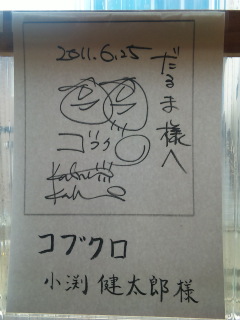 2011.6.25
だるま様へ
コブクロ
コブクロ
小渕 健太郎 様